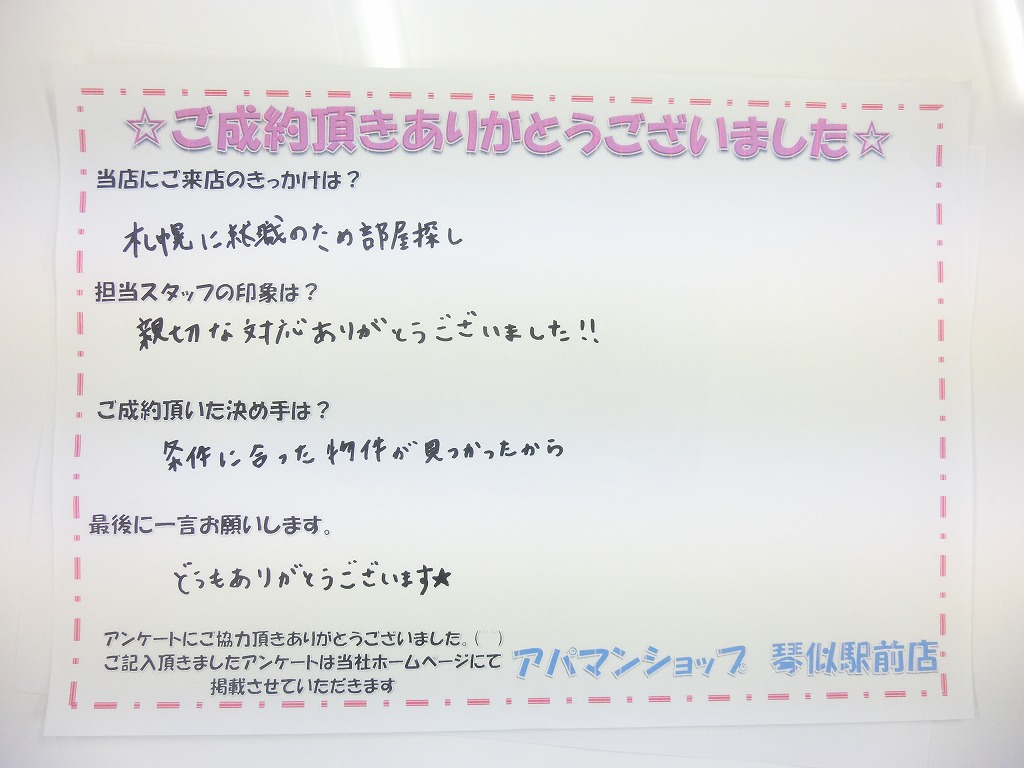 ☆ご成約頂きありがとうございました☆
当店にご来店のきっかけは？
札幌に就職のため部屋探し
担当スタッフの印象は？
親切な対応ありがとうございました!!
ご成約頂いた決め手は？
条件に合った物件が見つかったから
最後に一言お願いします。
どうもありがとうございます★
アンケートにご協力頂きありがとうございました。( )
ご記入頂きましたアンケートは当社ホームページにて
掲載させていただきます
アパマンショップ 琴似駅前店